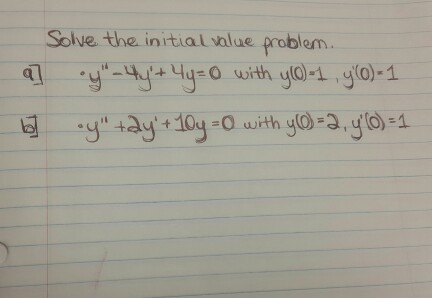 Solve the initial value problem.
a] • y" - 4y' + 4y = 0 with y(0) = 1, y'(0) = 1
b] • y" + 2y' + 10y = 0 with y(0) = 2, y'(0) = 1